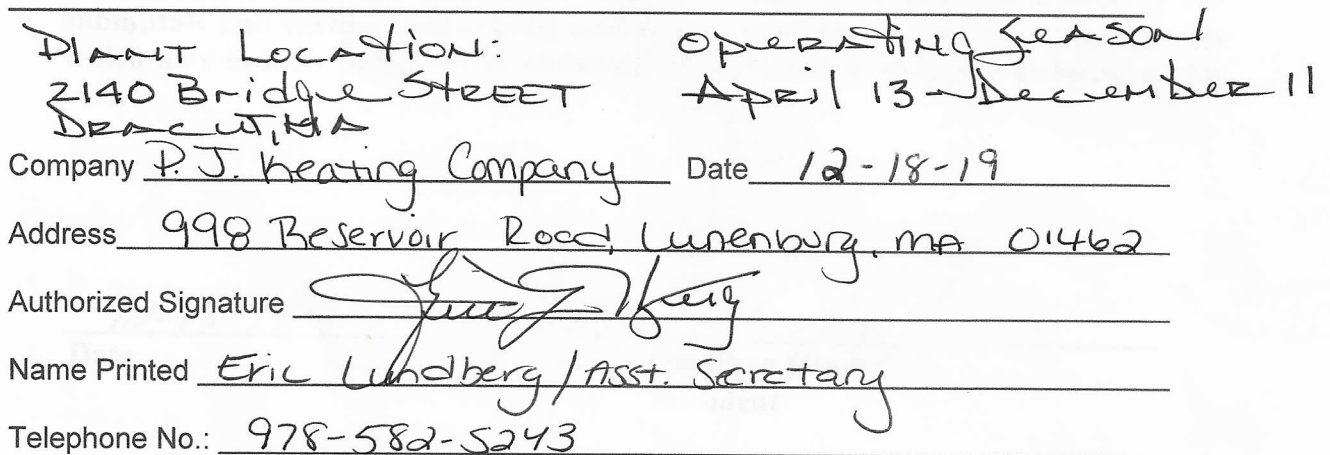 PLANT LOCATION: OPERATING SEASON
2140 Bridge STREET April 13 - December 11
DRACUT, MA
Company P.J. Keating Company Date 12-18-19
Address 998 Reservoir Road, Lunenburg, MA 01462
Authorized Signature
Name Printed Eric Lundberg / Asst. Secretary
Telephone No.: 978-582-5243